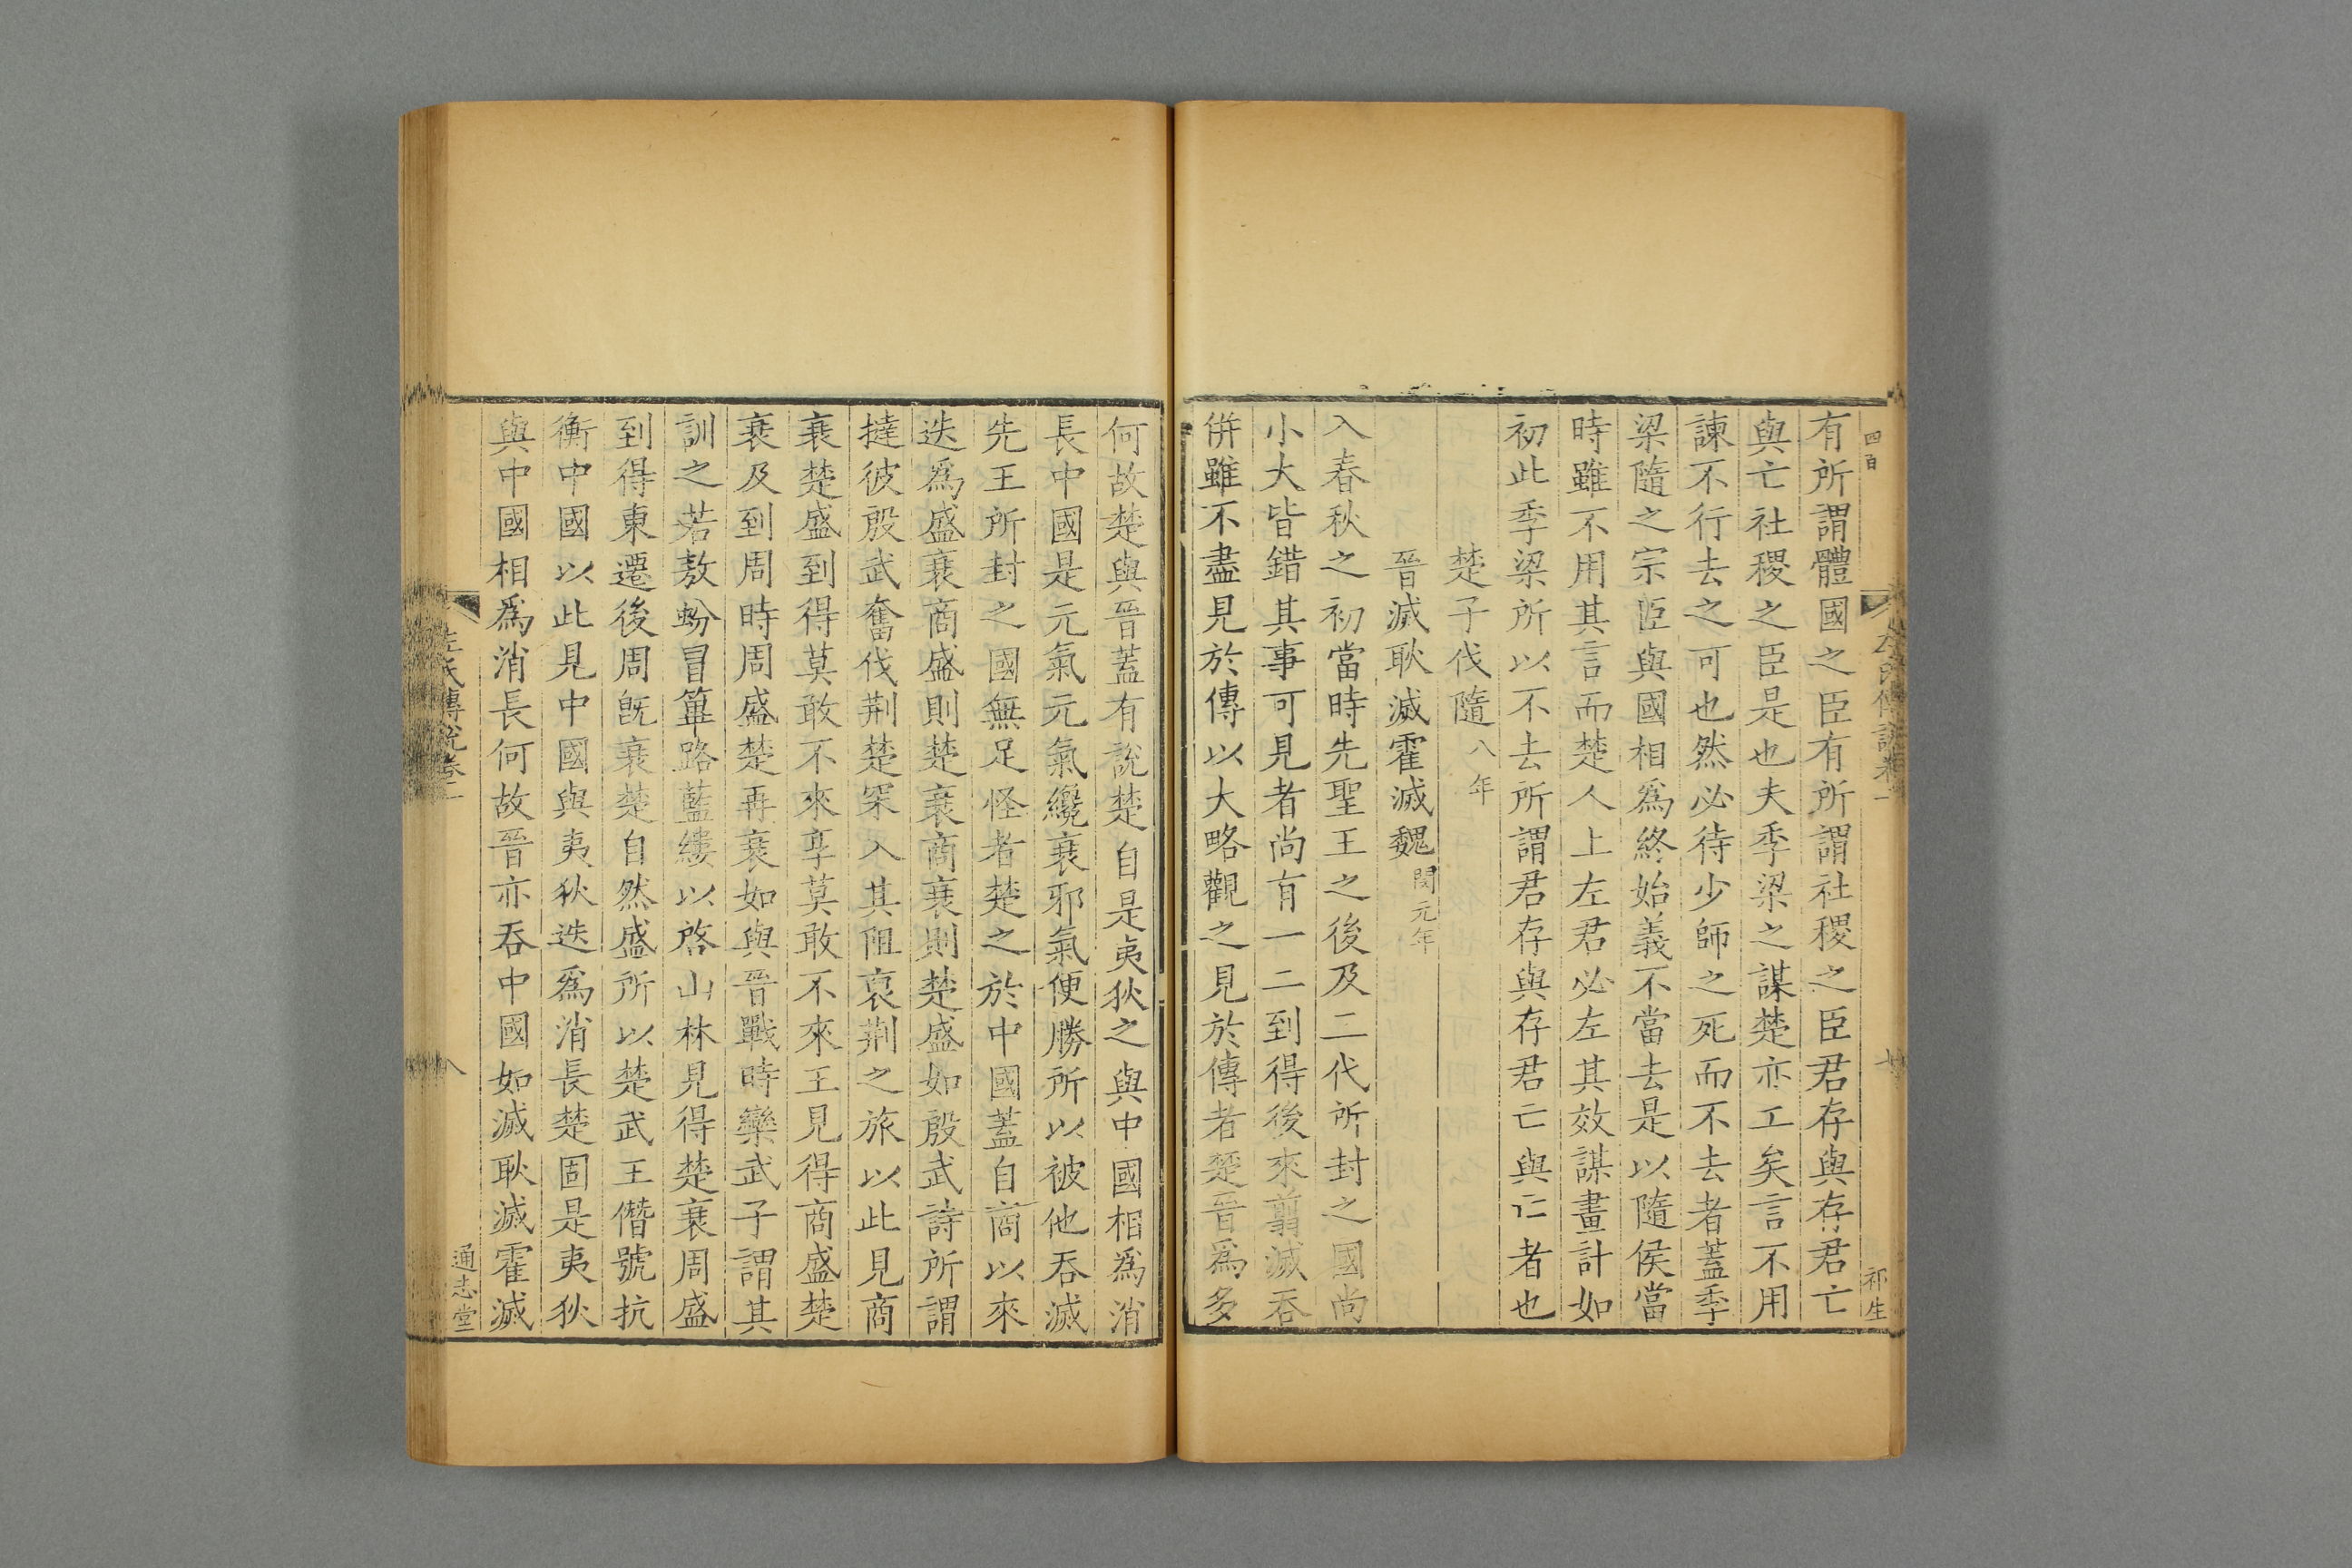 四百
祁生
有所謂體國之臣有所謂社稷之臣君存與存君亡
與亡社稷之臣是也夫季梁之謀楚亦工矣言不用
諫不行去之可也然必待少師之死而不去者蓋季
梁隨之宗臣與國相爲終始義不當去是以隨侯當
時雖不用其言而楚人上左君必左其效謀畫計如
初此季梁所以不去所謂君存與存君亡與亡者也
楚子伐隨八年
晉滅耿滅霍滅魏閔元年
入春秋之初當時先聖王之後及二代所封之國尚
小大皆錯其事可見者尚有一二到得後來翦滅吞
併雖不盡見於傳以大略觀之見於傳者楚晉爲多
何故楚與晉蓋有說楚自是夷狄之與中國相爲消
長中國是元氣元氣纔衰邪氣便勝所以被他吞滅
先王所封之國無足怪者楚之於中國蓋自商以來
迭爲盛衰商盛則楚衰商衰則楚盛如殷武詩所謂
撻彼殷武奮伐荆楚罙入其阻裒荆之旅以此見商
衰楚盛到得莫敢不來享莫敢不來王見得商盛楚
衰及到周時周盛楚再衰如與晉戰時欒武子謂其
訓之若敖蚡冒篳路藍縷以啓山林見得楚衰周盛
到得東遷後周旣衰楚自然盛所以楚武王僭號抗
衡中國以此見中國與夷狄迭爲消長楚固是夷狄
與中國相爲消長何故晉亦吞中國如滅耿滅霍滅
左氏傳說卷二
八
通志堂